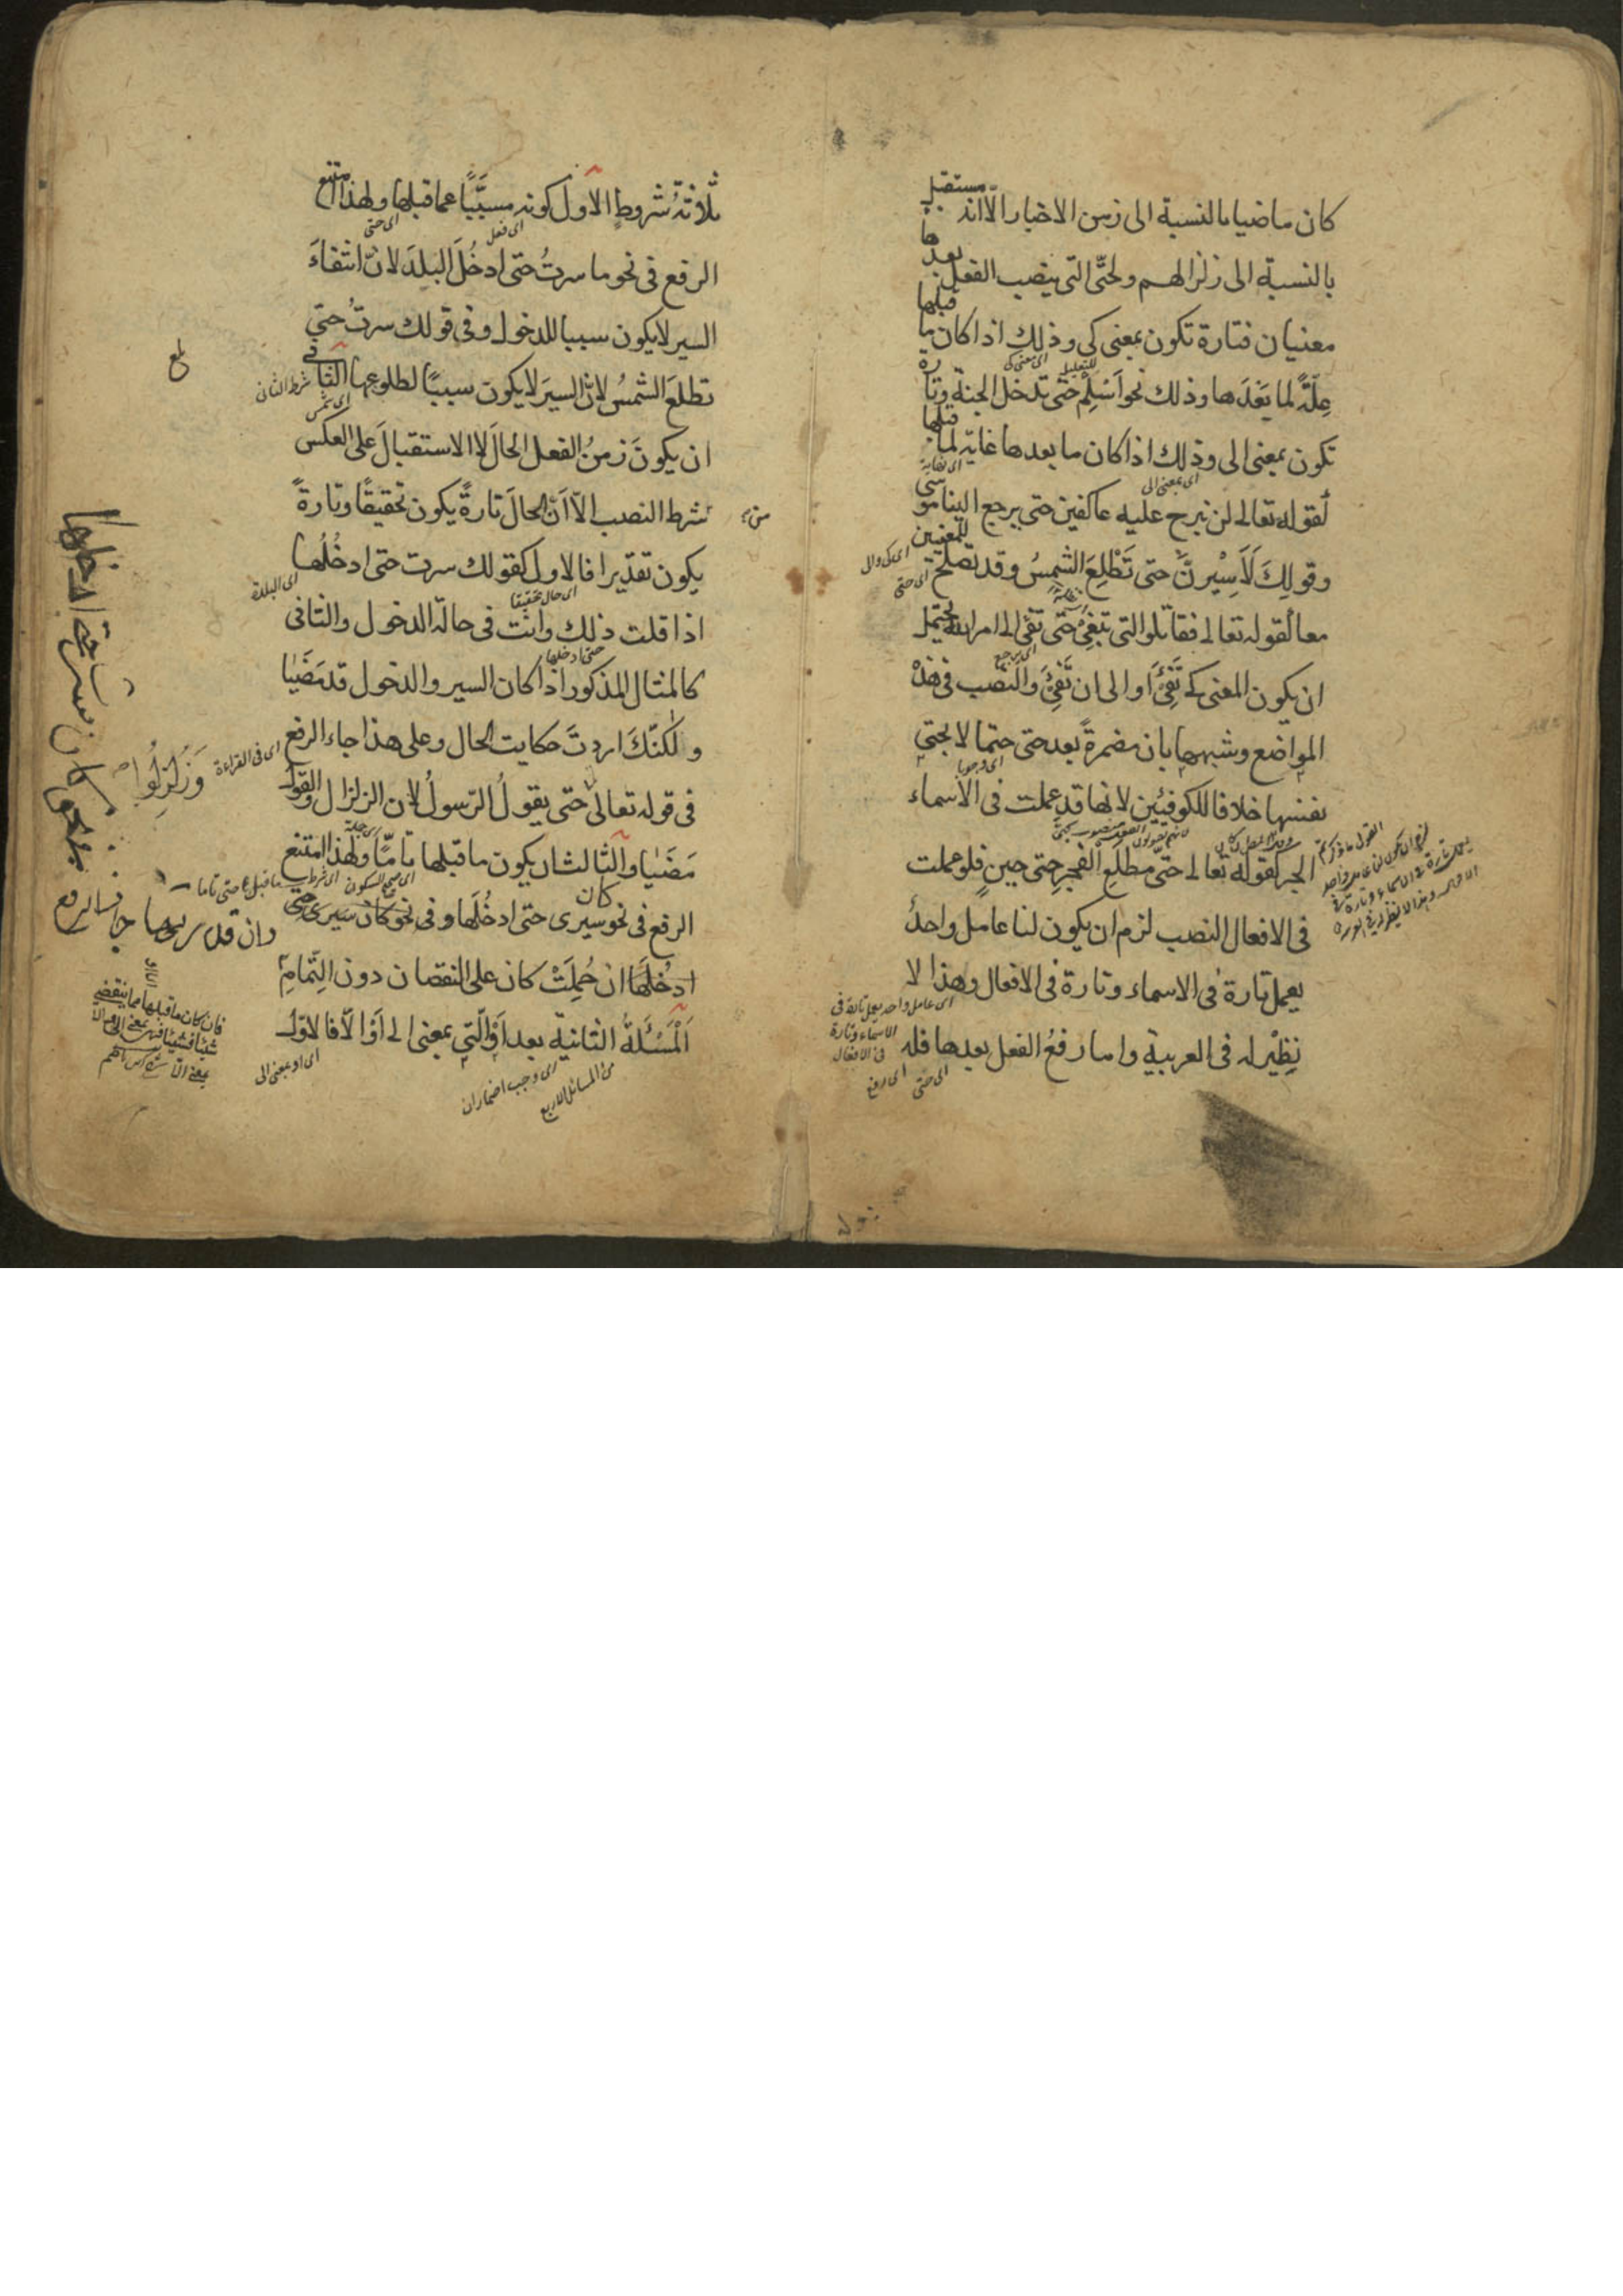 كان ماضيا بالنسبة الى زمن الاخبار الا انه مستقبل
بالنسبة الى زلزالهم ولحتّى التى ينصب الفعل بعدها
معنيان فتارة تكون بمعنى كى وذلك اذا كان ما قبلها
علّةً لما بَعْدَها وذلك نحو اَسْلِمْ حتى تدخل الجنة وتارة
تكون بمعنى الى وذلك اذا كان ما بعدها غاية لما قبلها
كقوله تعالى لن نبرح عليه عاكفين حتى يرجع الينا موسى
وقولِكَ لَاَسِيْرنَّ حتى تَطْلِعَ الشمسُ وقد تصلح للمعنيين
معا كقوله تعالى فقاتلوا التى تبغى حتى تفئ الى امر الله يحتمل
ان يكون المعنى كى تَفِئَ او الى ان تَفِئَ والنصب فى هذه
المواضع وشبهها بان مضمرةً بعد حتى حتما لا بحتى
نفسها خلافا للكوفيين لانها قد عملت فى الاسماء
الجر كقوله تعالى حتّى مطلع الفجر حتى حين فلو عملت
فى الافعال النصب لزم ان يكون لنا عامل واحدٌ
يعمل تارة فى الاسماء وتارة فى الافعال وهذا لا
نظير له فى العربية واما رفعُ الفعل بعدها فله
اى بمعنى كى
للتعليل
اى بمعنى الى
اى حتى
اى وجوبا
اى عامل واحد يعمل تارة فى
الاسماء وتارة
فى الافعال
اى حتى
اى رفع
ثلاثةُ شروطٍ الاول كونه مسبَّبًا عما قبلها ولهذا امتنع
الرفع فى نحو ما سرتُ حتى ادخُلَ البلدَ لانّ انتفاءَ
السير لا يكون سببا للدخول وفى قولك سرتُ حتى
تطلعَ الشمسُ لانّ السيرَ لا يكون سببًا لطلوعها الثانى
ان يكونَ زمنُ الفعل الحالَ لا الاستقبالَ على العكس
من شرط النصب الّا اَنّ الحالَ تارةً يكون تحقيقًا وتارةً
يكون تقديرا فالاول كقولك سرت حتى ادخُلُها
اذا قلت ذلك وانت فى حالة الدخول والثانى
كالمثال المذكور اذا كان السير والدخول قد مَضَيَا
ولكنّكَ اردتَ حكايت الحال وعلى هذا جاء الرفع
فى قوله تعالى حتى يقولُ الرّسولُ لان الزلزال والقول
مَضَيَا والثالث ان يكون ما قبلها تامًّا ولهذا امتنع
الرفع فى نحو سيرى حتى ادخُلَها وفى نحو كان سيرى حتى
ادخُلَها ان حُمِلَتْ كان على النقصان دون التّمامِ
اَلْمَسْئَلةُ الثانية بعد اَوْ الّتى بمعنى الى اَوْ الّا فالاوّل
اى فعل
اى حتى
شرط الثانى
اى شمس
اى البلدة
اى حال تحقيقا
حتى ادخلها
اى فى القراءة
وَزُلْزِلُوا
ما قبل حتى تاما
من المسائل الاربع
اى وجب اضمار ان
اى او بمعنى الى
فان كان ما قبلها مما ينقضى
شيئا فشيئا فهى بمعنى الى والا
بمعنى الا